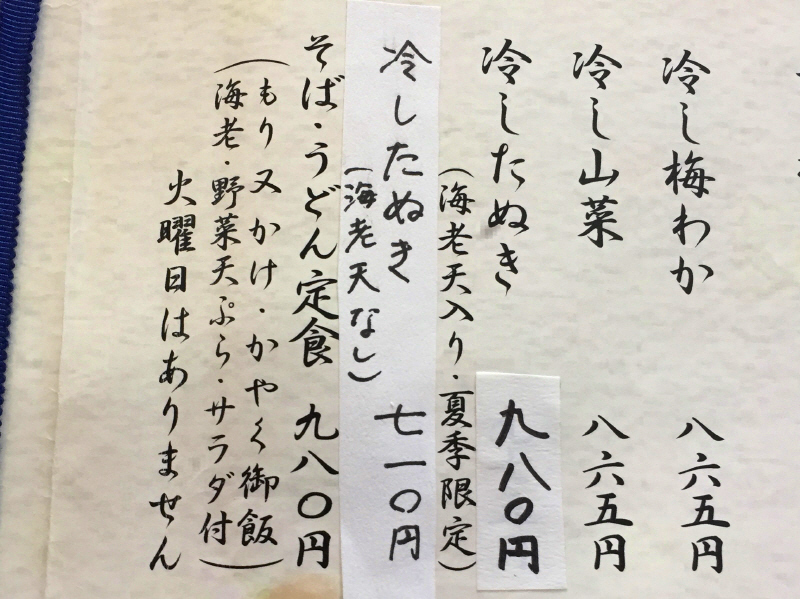 冷し梅わか 八六五円
冷し山菜 八六五円
冷したぬき 九八〇円
（海老天入り・夏季限定）
冷したぬき 七一〇円
（海老天なし）
そば・うどん定食 九八〇円
（もり又かけ・かやく御飯
海老・野菜天ぷら・サラダ付）
火曜日はありません